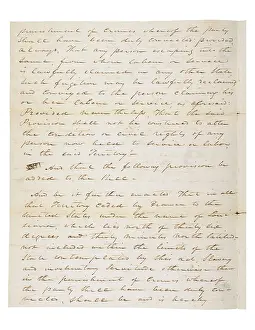 punishment of crimes whereof the party
shall have been duly convicted provided
always, That any person escaping into the
same from whom labour or service
is lawfully claimed in any other State
such fugitive may be lawfully reclaimed
and conveyed to the person claiming his
or her labour or service as aforesaid
Provided nevertheless That the said
Provision shall not be construed to alter
the condition or civil rights of any
person now held to service or labour
in the said Territory
And that the following provision be
added to the Bill
And be it further enacted That in all
that Territory ceded by France to the
United States under the name of Loui
siana, which lies north of thirty six
degrees and thirty minutes north latitude
not included within the limits of the
State contemplated by this act, Slavery
and involuntary Servitude otherwise than
in the punishment of Crimes whereof
the party shall have been duly con
victed, Shall be and is hereby